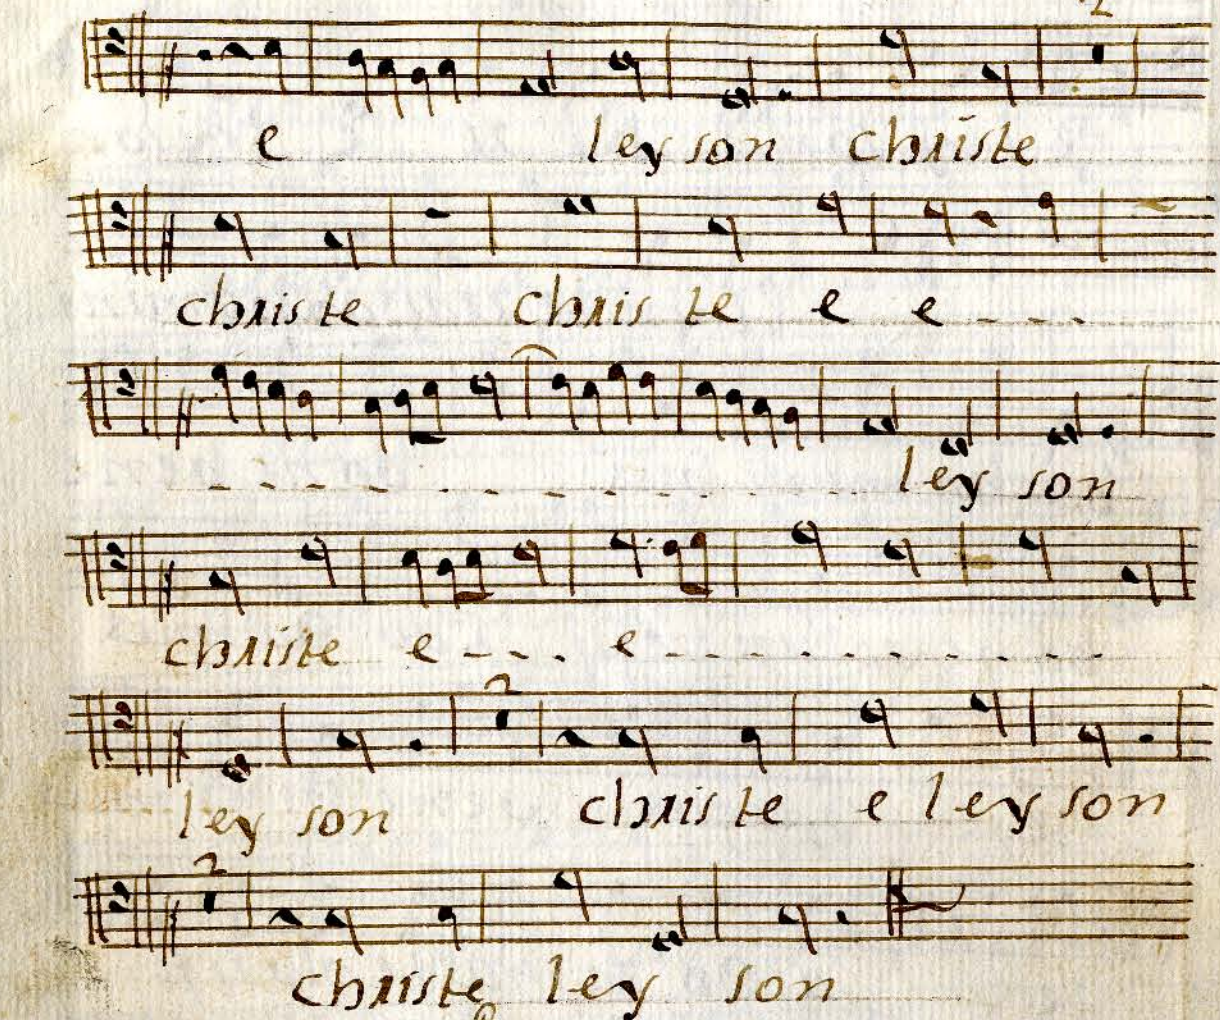 2
e ley son christe
chris te chris te e e - - -
- - - - - - - - - - - ley son
christe e - - - e - - - - - - - - - -
2
ley son chris te e ley son
2
christe ley son